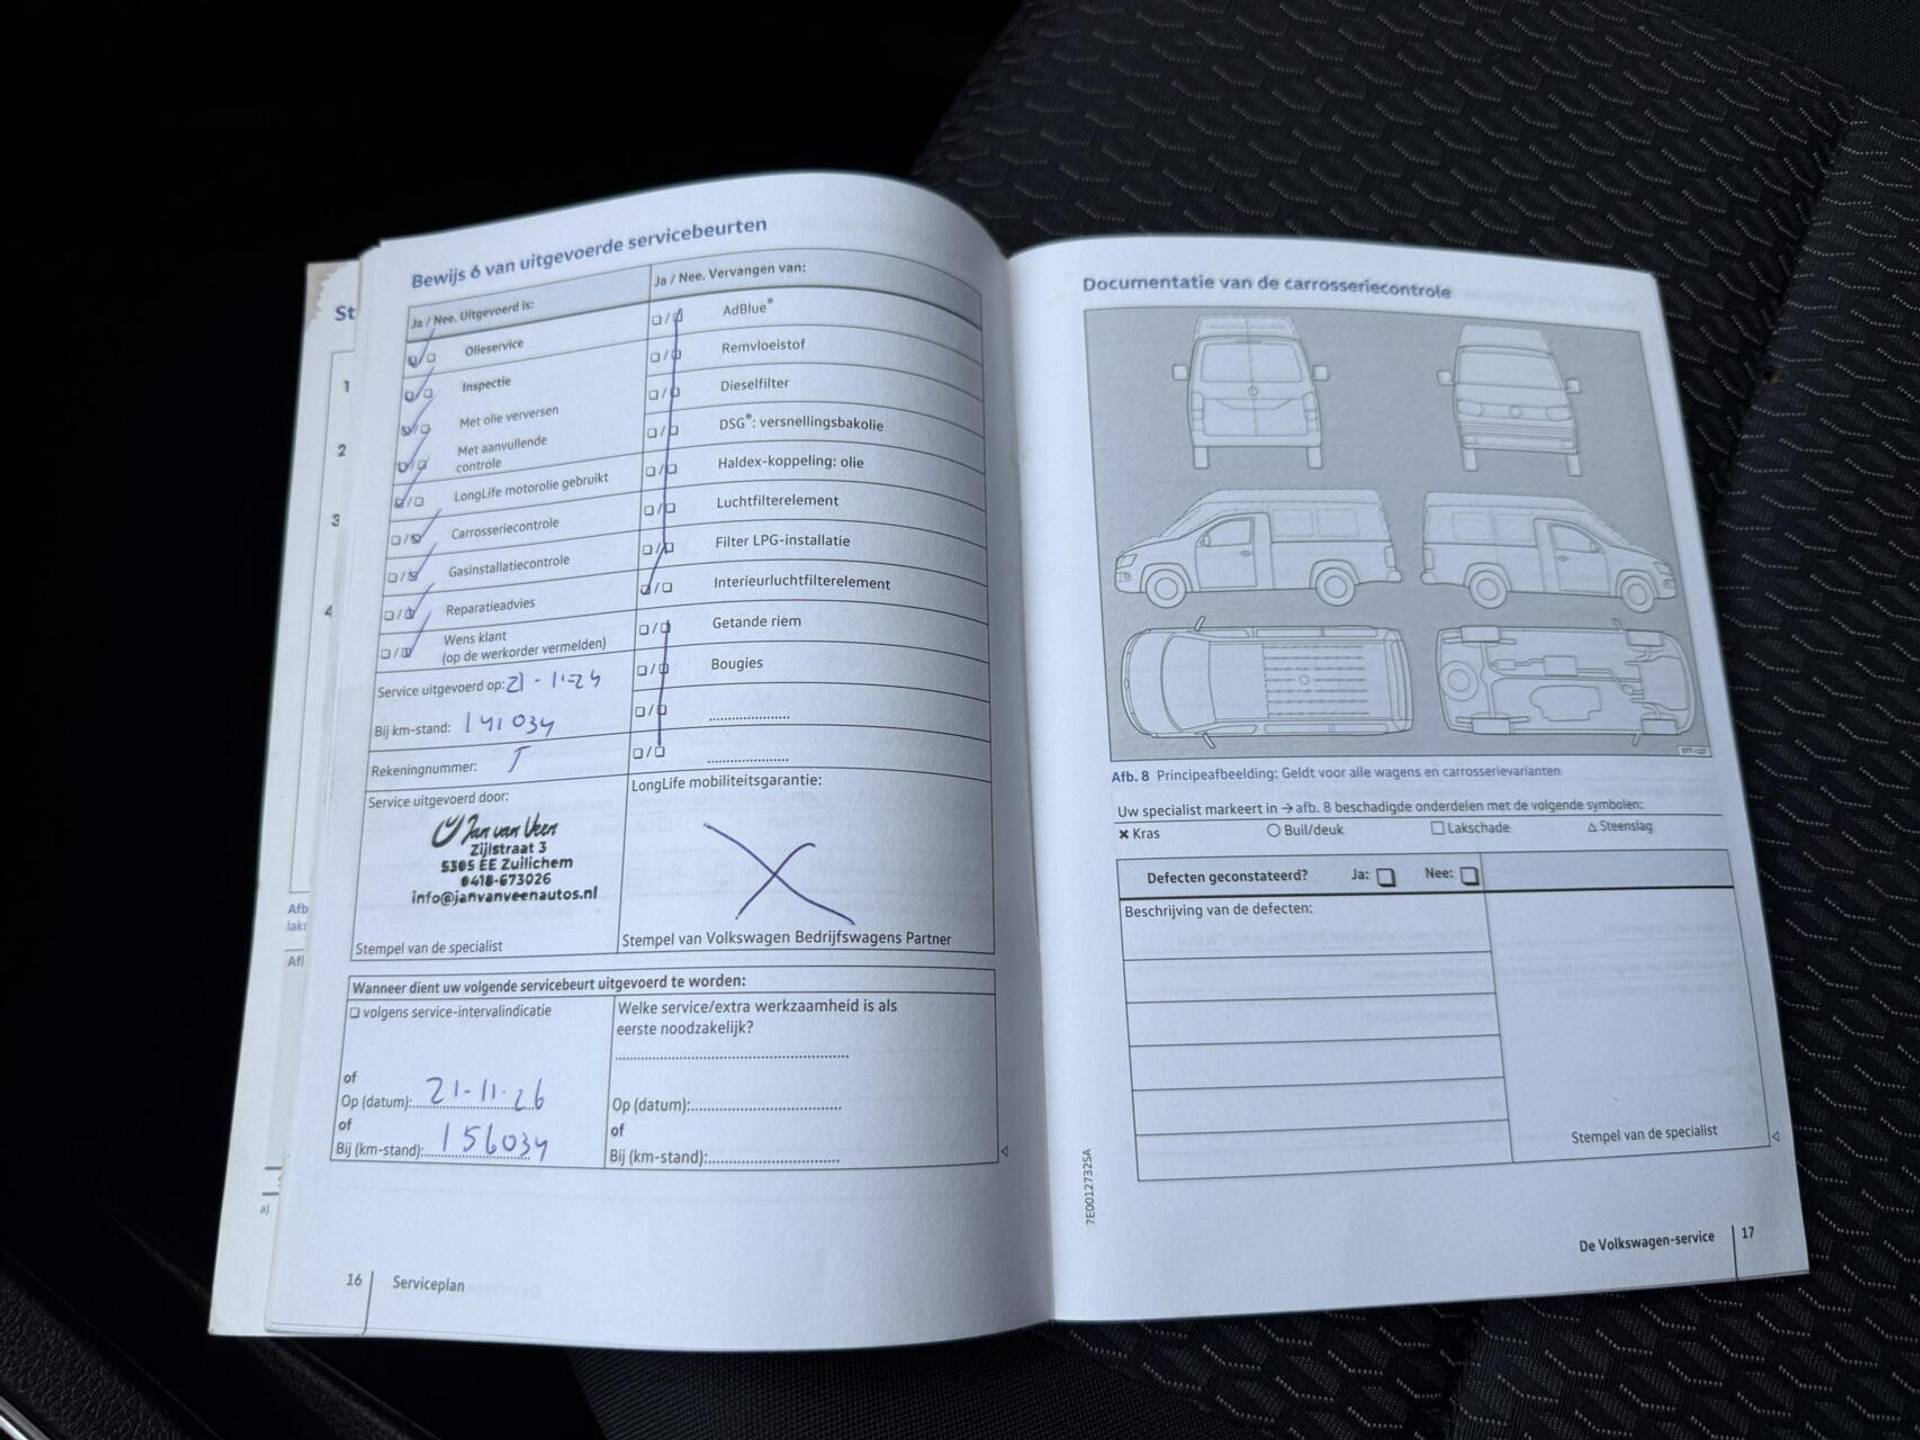 St
1
2
3
4
Afb
lakr
Afl
a)
Bewijs 6 van uitgevoerde servicebeurten
Ja / Nee. Uitgevoerd is:
Olieservice
Inspectie
Met olie verversen
Met aanvullende
controle
LongLife motorolie gebruikt
Carrosseriecontrole
Gasinstallatiecontrole
Reparatieadvies
Wens klant
(op de werkorder vermelden)
Service uitgevoerd op:
Bij km-stand: 141034
Rekeningnummer:
Ja / Nee. Vervangen van:
AdBlue®
Remvloeistof
Dieselfilter
DSG®: versnellingsbakolie
Haldex-koppeling: olie
Luchtfilterelement
Filter LPG-installatie
Interieurluchtfilterelement
Getande riem
Bougies
Service uitgevoerd door:
Jan van Veen
Zijlstraat 3
5305 EE Zuilichem
0418-673026
info@janvanveenautos.nl
Stempel van de specialist
LongLife mobiliteitsgarantie:
Stempel van Volkswagen Bedrijfswagens Partner
Wanneer dient uw volgende servicebeurt uitgevoerd te worden:
volgens service-intervalindicatie
of
Op (datum): 21-11-26
of
Bij (km-stand): 156034
Welke service/extra werkzaamheid is als
eerste noodzakelijk?
Op (datum):
of
Bij (km-stand):
16 Serviceplan
Documentatie van de carrosseriecontrole
Afb. 8 Principeafbeelding: Geldt voor alle wagens en carrosserievarianten
Uw specialist markeert in → afb. 8 beschadigde onderdelen met de volgende symbolen:
× Kras ○ Buil/deuk □ Lakschade △ Steenslag
Defecten geconstateerd? Ja: Nee:
Beschrijving van de defecten:
Stempel van de specialist
7E0012732SA
De Volkswagen-service 17